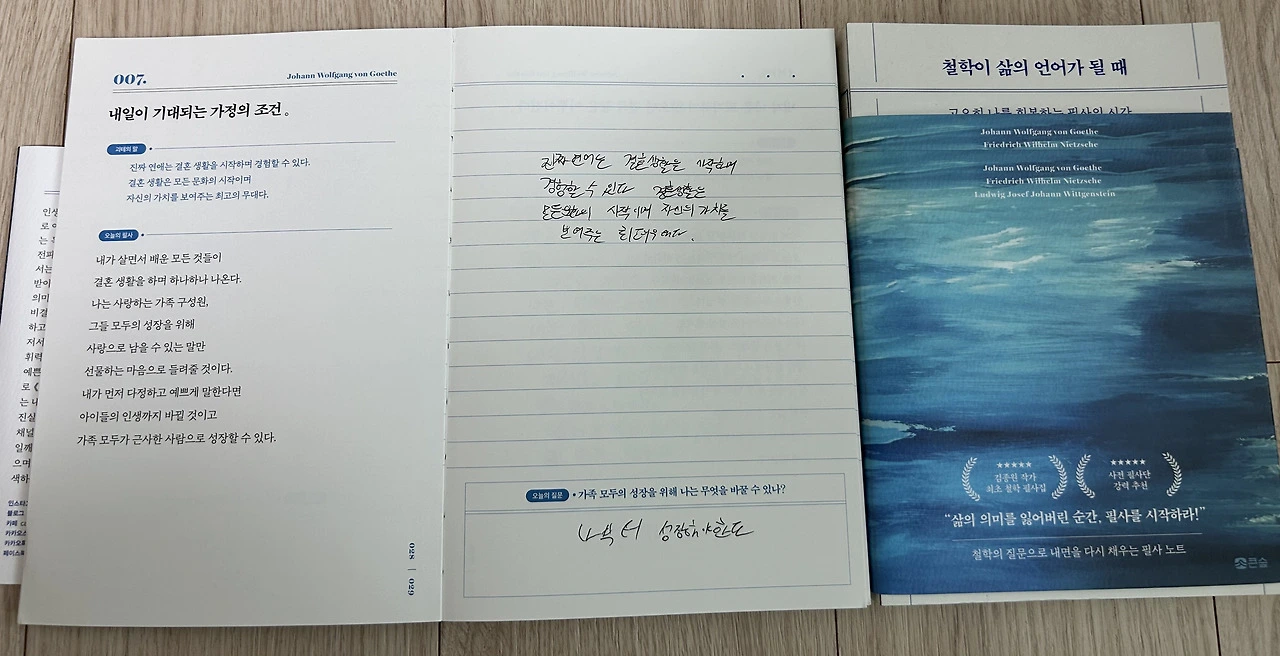 007.
Johann Wolfgang von Goethe
내일이 기대되는 가정의 조건。
괴테의 말
진짜 연애는 결혼 생활을 시작하며 경험할 수 있다.
결혼 생활은 모든 문화의 시작이며
자신의 가치를 보여주는 최고의 무대다.
오늘의 필사
내가 살면서 배운 모든 것들이
결혼 생활을 하며 하나하나 나온다.
나는 사랑하는 가족 구성원,
그들 모두의 성장을 위해
사랑으로 남을 수 있는 말만
선물하는 마음으로 들려줄 것이다.
내가 먼저 다정하고 예쁘게 말한다면
아이들의 인생까지 바뀔 것이고
가족 모두가 근사한 사람으로 성장할 수 있다.
028 | 029
진짜 연애는 결혼생활을 시작하며
경험할 수 있다 결혼생활은
시작이며 자신의 가치를
보여주는
오늘의 질문 • 가족 모두의 성장을 위해 나는 무엇을 바꿀 수 있나?
나부터 성장해야한다
인생
로
는
전파
서는
받아
의미
비결
하고
저서
휘력
예쁜
로 《
는 내
진실
채널
일깨
으며
색하
인스타
블로그
카페
카카오스
카카오
페이스북
철학이 삶의 언어가 될 때
고요히 나를 회복하는 필사의 시간
Johann Wolfgang von Goethe
Friedrich Wilhelm Nietzsche
Johann Wolfgang von Goethe
Friedrich Wilhelm Nietzsche
Ludwig Josef Johann Wittgenstein
★★★★★
김종원 작가
최초 철학 필사집
★★★★★
사전 필사단
강력 추천
“삶의 의미를 잃어버린 순간, 필사를 시작하라!”
철학의 질문으로 내면을 다시 채우는 필사 노트
큰숲